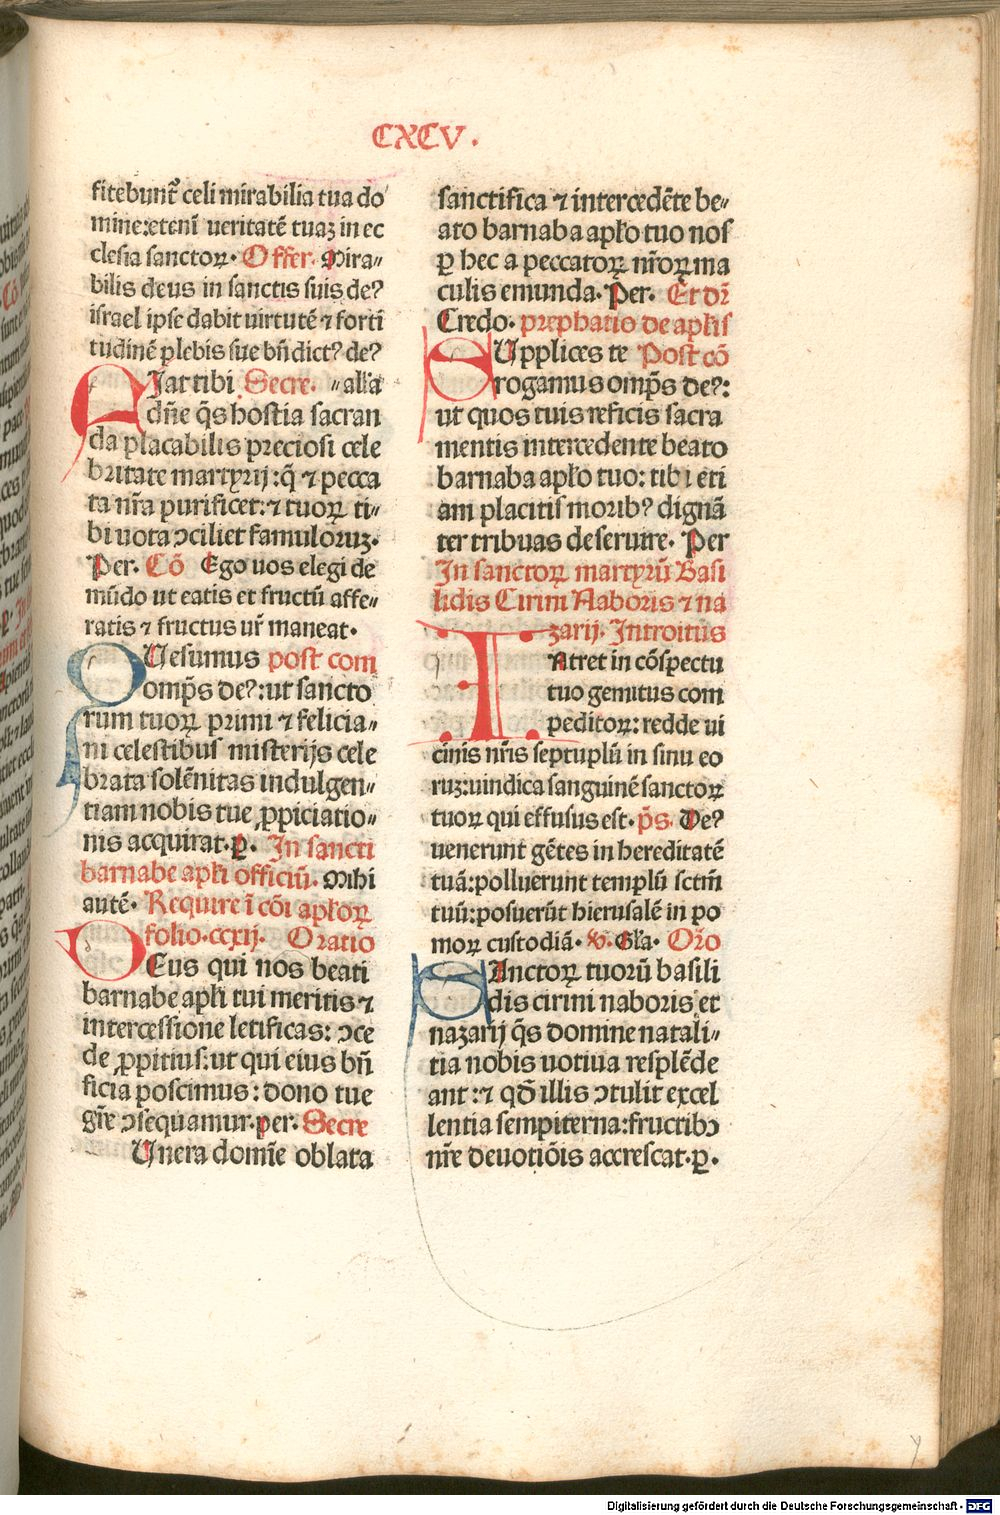 CXCV.
fitebunt᷒ celi mirabilia tua do
mine:eteni᷒ ueritatē tuaʒ in ec
clesia sanctoꝝ. Offer. Mira⸗
bilis deus in sanctis suis de?
israel ipse dabit uirtutē ⁊ forti
tudinē plebis sue bn̄dict? de?
FIat tibi Secre. ⸗alľa
dn̄e q̄s hostia sacran
da placabilis preciosi cele
britate martyrij:q̄ ⁊ pecca
ta nr̄a purificet:⁊ tuoꝝ ti⸗
bi uota ↄciliet famuloruʒ.
Per. Cō Ego uos elegi de
mūdo ut eatis et fructū affe⸗
ratis ⁊ fructus ur̄ maneat.
QUesumus post com
omp̄s de?:ut sancto
rum tuoꝝ primi ⁊ felicia⸗
ni celestibus misterijs cele
brata solēnitas indulgen⸗
tiam nobis tue ꝓpiciatio⸗
nis acquirat.ꝑ. In sancti
barnabe apłi officiū. Mihi
autē. Require ī cōi apłoꝝ
folio.ccxij. Oratio
DEus qui nos beati
barnabe apłi tui meritis ⁊
intercessione letificas: ↄce
de ꝓpitius:ut qui eius bn̄
ficia poscimus: dono tue
gr̄e ↄsequamur.per. Secre
Unera domīe oblata
sanctifica ⁊ intercedēte be⸗
ato barnaba apło tuo nos
ꝑ hec a peccatoꝝ nr̄oꝝ ma
culis emunda. Per. Et dr̄
Credo. prephatio de apłis
SUpplices te Post cō
rogamus omp̄s de?:
ut quos tuis reficis sacra
mentis intercedente beato
barnaba apło tuo: tibi eti
am placitis morib? dignā
ter tribuas deseruire. Per
In sanctoꝝ martyrū Basi
lidis Cirini Naboris ⁊ na
zarij. Introitus
INtret in cōspectu
tuo gemitus com
peditoꝝ: redde ui
cinis nr̄is septuplū in sinu eo
ruʒ:uindica sanguinē sanctoꝝ
tuoꝝ qui effusus est. p̄s. De?
uenerunt gētes in hereditatē
tuā:polluerunt templū sctm̄
tuū:posuerūt hierusalē in po
moꝝ custodiā. V. Gľa. Orō
SAnctoꝝ tuorū basili
dis cirini naboris et
nazarij q̄s domine natali⸗
tia nobis uotiua resplēde
ant:⁊ qđ illis ↄtulit excel
lentia sempiterna:fructibꝫ
nr̄e deuotiōis accrescat.ꝑ.
Digitalisierung gefördert durch die Deutsche Forschungsgemeinschaft - DFG